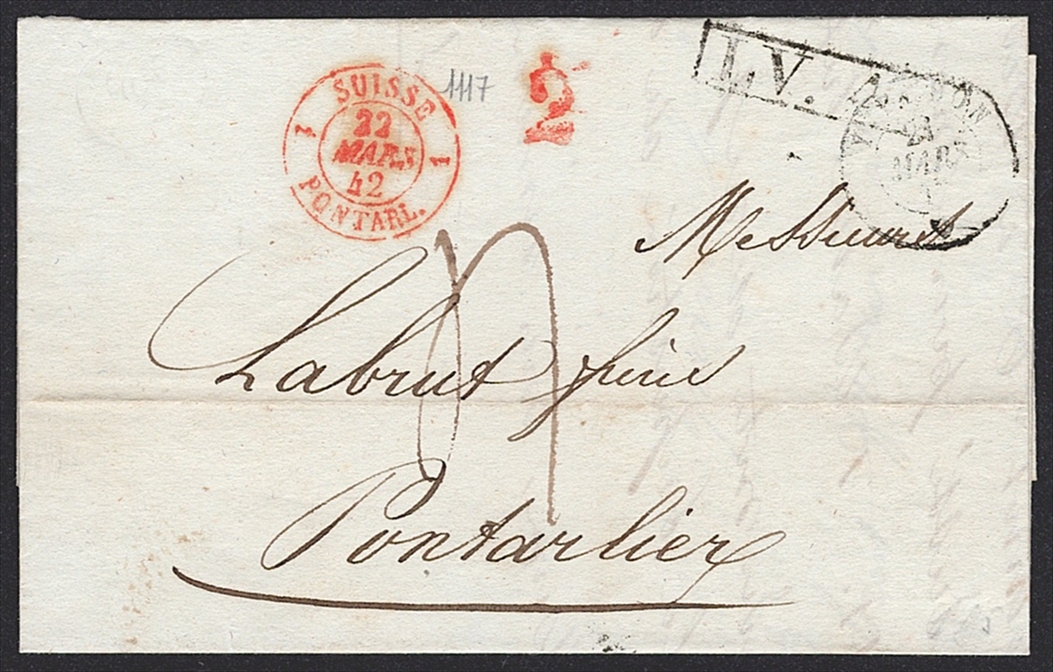 SUISSE
1 22 1
MARS
42
PONTARL.
1117
2
L.V.
MARS
Messieurs
Labrut frères
Pontarlier